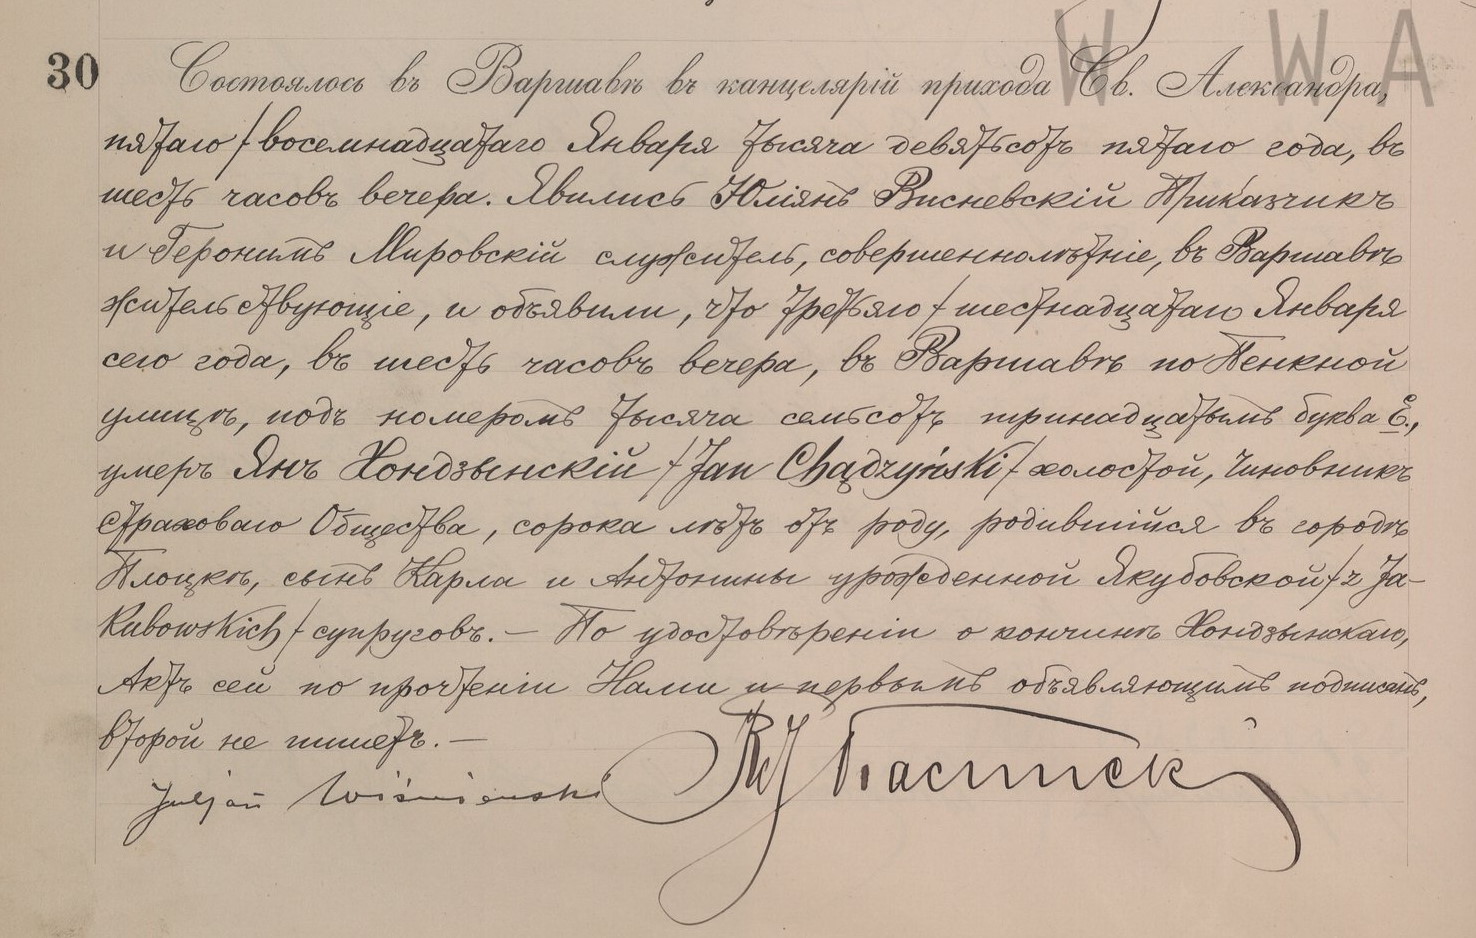 30 Состоялось въ Варшавѣ въ канцелярій прихода Св. Александра,
пятаго / восемнадцатаго Января тысяча девятьсотъ пятаго года, въ
шесть часовъ вечера. Явились Юліянъ Висневскій Приказчикъ
и Геронимъ Мировскій служитель, совершеннолѣтніе, въ Варшавѣ
жительствующіе, и объявили, что третьяго / шестнадцатаго Января
сего года, въ шесть часовъ вечера, въ Варшавѣ по Пенкной
улицѣ, подъ номеромъ тысяча семьсотъ тринадцатымъ буква Е.,
умеръ Янъ Хондзынскій / Jan Chądzyński / холостой, Чиновникъ
Страховаго Общества, сорока лѣтъ отъ роду, родившійся въ городѣ
Плоцкѣ, сынъ Карла и Антонины урожденной Якубовской / z Ja-
kubowskich / супруговъ. — По удостовѣреніи о кончинѣ Хондзынскаго,
Актъ сей по прочтеніи Нами и первымъ объявляющимъ подписанъ,
второй не пишетъ. —
Juljan Wiśniewski
W W A